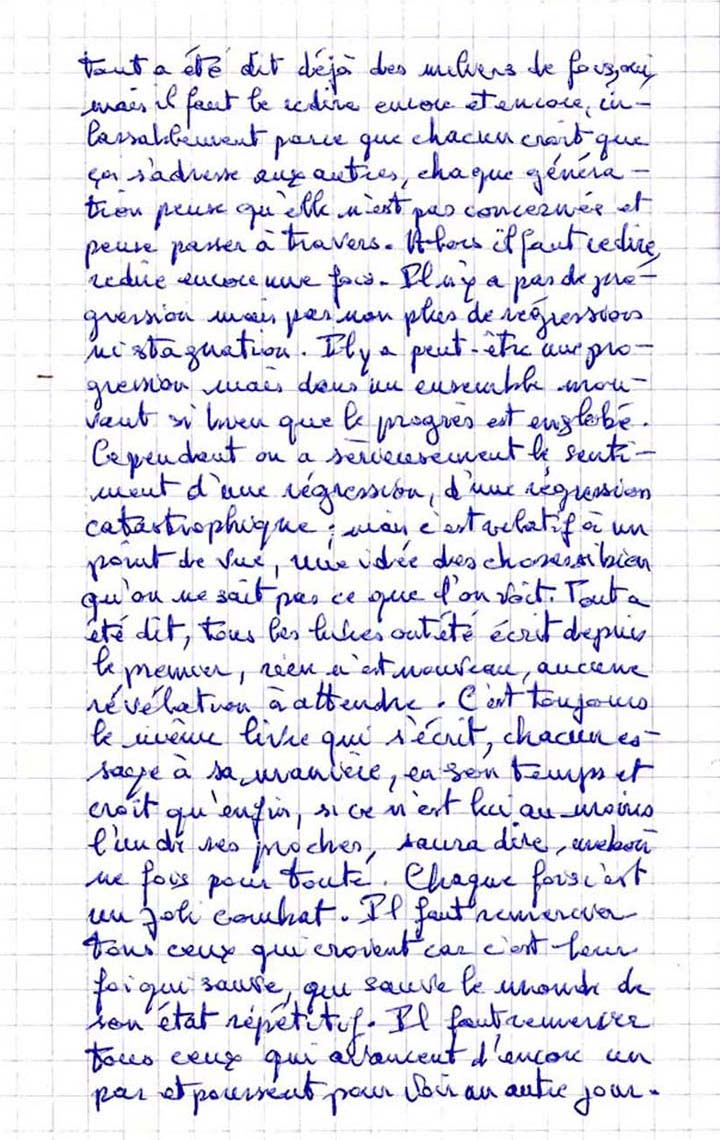 tout a été dit déjà des milliers de fois, oui,
mais il faut le redire encore et encore, in-
lassablement parce que chacun croit que
ça s'adresse aux autres, chaque généra-
tion pense qu'elle n'est pas concernée et
pense passer à travers. Alors il faut redire,
redire encore une fois. Il n'y a pas de pro-
gression mais pas non plus de régressions
ni stagnation. Il y a peut-être une pro-
gression mais dans un ensemble mou-
vant si bien que le progrès est englobé.
Cependant on a sérieusement le senti-
ment d'une régression, d'une régression
catastrophique ; mais c'est relatif à un
point de vue, une idée des choses si bien
qu'on ne sait pas ce que l'on voit. Tout a
été dit, tous les livres ont été écrit depuis
le premier, rien n'est nouveau, aucune
révélation à attendre. C'est toujours
le même livre qui s'écrit, chacun es-
saye à sa manière, en son temps et
croit qu'enfin, si ce n'est lui au moins
l'un de ses proches, saura dire, une bon
ne fois pour toute. Chaque fois c'est
un joli combat. Il faut remercier
tous ceux qui croient car c'est leur
foi qui sauve, qui sauve le monde de
son état répétitif. Il faut remercier
tous ceux qui avancent d'encore un
pas et poussent pour voir un autre jour.